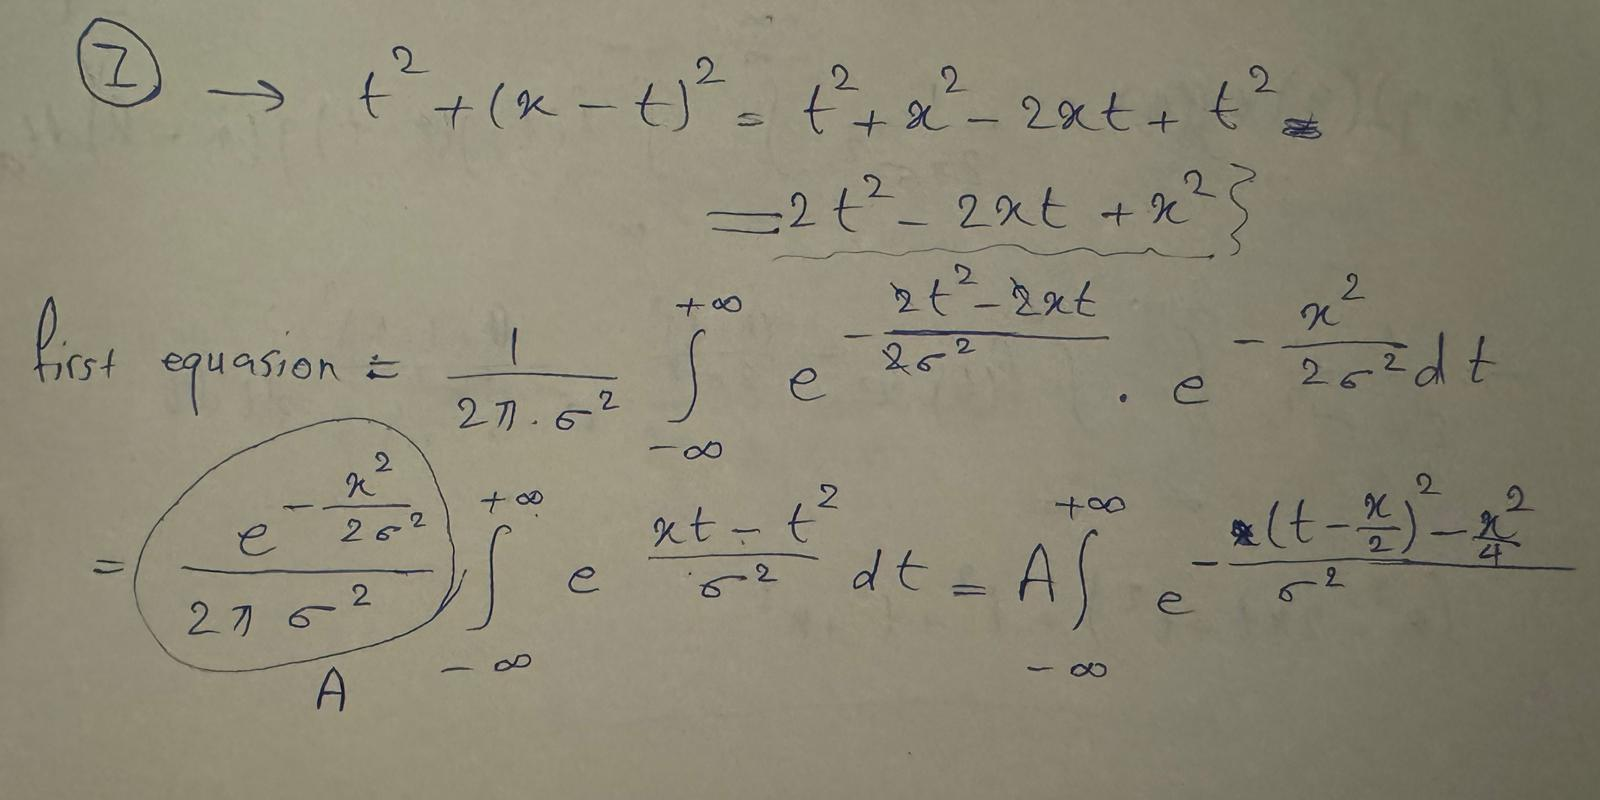 ① → t² + (x − t)² = t² + x² − 2xt + t² =
= 2t² − 2xt + x² }
first equasion = 1/(2π.σ²) ∫_{−∞}^{+∞} e^{−(2t² − 2xt)/(2σ²)} . e^{−x²/(2σ²)} dt
= e^{−x²/(2σ²)}/(2πσ²) ∫_{−∞}^{+∞} e^{(xt − t²)/σ²} dt = A ∫_{−∞}^{+∞} e^{−((t − x/2)² − x²/4)/σ²}
A